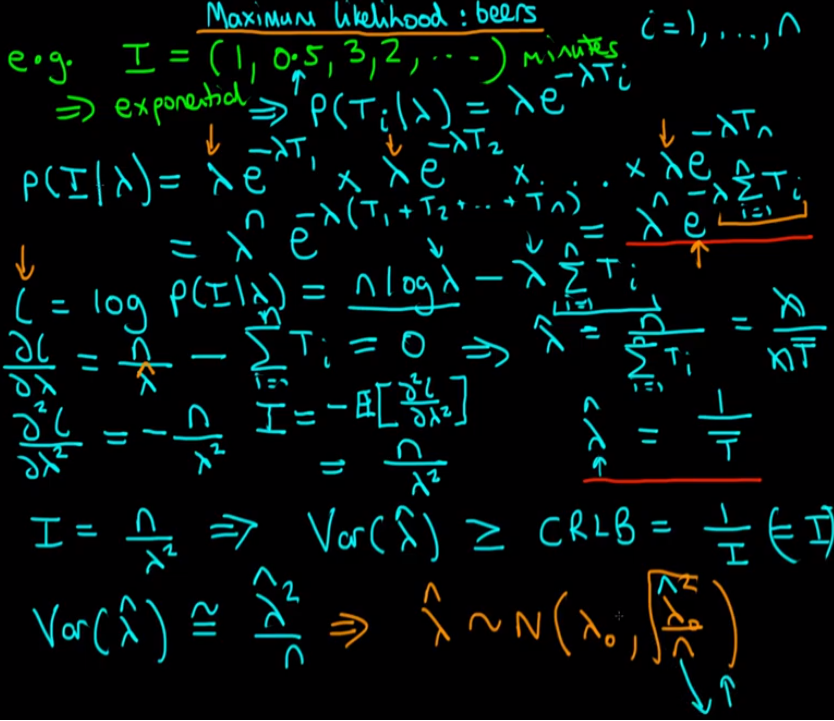 Maximum likelihood : beers
i = 1, ..., n
e.g. I = (1, 0.5, 3, 2, ...) minutes
⇒ exponential ⇒ P(T_i|λ) = λe^{-λT_i}
P(I|λ) = λe^{-λT_1} × λe^{-λT_2} × . . . × λe^{-λT_n}
= λ^n e^{-λ(T_1 + T_2 + ... + T_n)} = λ^n e^{-λ∑_{i=1}^{n} T_i}
l = log P(I|λ) = n log λ − λ ∑_{i=1}^{n} T_i
∂l/∂λ = n/λ̂ − ∑_{i=1}^{n} T_i = 0 ⇒ λ̂ = n/∑_{i=1}^{n} T_i = n/nT̅
∂²l/∂λ² = −n/λ² I = −E[∂²l/∂λ²]
= n/λ²
λ̂ = 1/T̅
I = n/λ² ⇒ Var(λ̂) ≥ CRLB = 1/I (= I
Var(λ̂) ≅ λ̂²/n ⇒ λ̂ ~ N(λ_0, λ̂_0²/n)